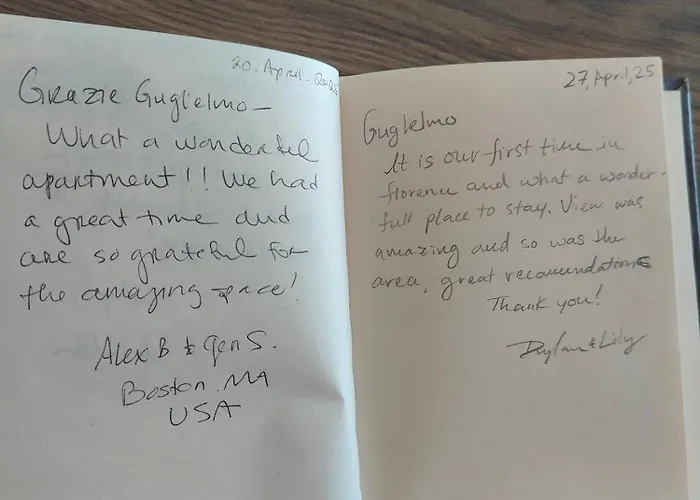 20. April. 2025
Grazie Guglielmo —
What a wonderful
apartment!! We had
a great time and
are so grateful for
the amazing space!
Alex B & Jen S.
Boston, MA
USA
27, April, 25
Guglielmo
It is our first time in
florence and what a wonder-
full place to stay. View was
amazing and so was the
area, great recomendations
Thank you!
Dylan & Lily